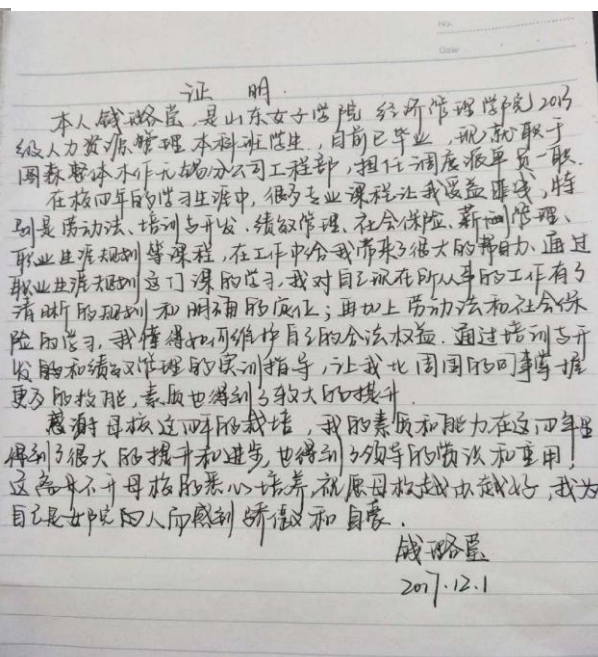 No.
Date
证 明.
本人钱璐莹,是山东女子学院 经济管理学院2013
级人力资源管理本科班学生,目前已毕业,现就职于
图森整体木作无锡分公司工程部,担任调度派单员一职.
在校四年的学习生涯中,很多专业课程让我受益匪浅,特
别是劳动法、培训与开发、绩效管理、社会保险、薪酬管理、
职业生涯规划等课程,在工作中给我带来了很大的帮助.通过
职业生涯规划这门课的学习,我对自己现在所从事的工作有了
清晰的规划和明确的定位;再加上劳动法和社会保
险的学习,我懂得如何维护自己的合法权益.通过培训与开
发的和绩效管理的实训指导,让我比周围的同事掌握
更多的技能,素质也得到了较大的提升.
感谢母校这四年的栽培,我的素质和能力在这四年里
得到了很大的提升和进步,也得到了领导的赏识和重用!
这离不开母校的悉心培养,祝愿母校越办越好,我为
自己是女院的人而感到骄傲和自豪.
钱璐莹
2017.12.1